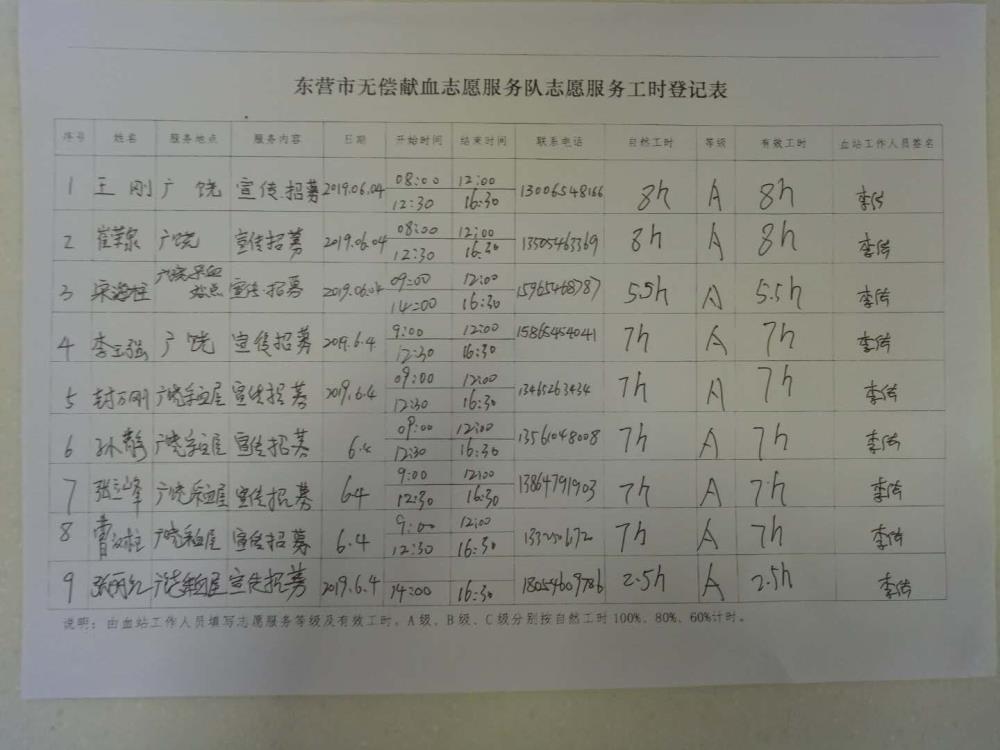 东营市无偿献血志愿服务队志愿服务工时登记表
序号 姓名 服务地点 服务内容 日期 开始时间 结束时间 联系电话 自然工时 等级 有效工时 血站工作人员签名
1 王刚 广饶 宣传.招募 2019.06.04 08:00 12:00 13006548166 8h A 8h
12:30 16:30
2 广饶 宣传招募 2019.06.04 08:00 12:00 13505463369 8h A 8h
12:30 16:30
3 宋海柱 广饶采血站点 宣传.招募 2019.06.04 09:00 12:00 15965468787 5.5h A 5.5h
14:00 16:30
4 李立强 广饶 宣传招募 2019.6.4 9:00 12:00 15865454041 7h A 7h
12:30 16:30
5 封万刚 广饶采血屋 宣传招募 2019.6.4 09:00 12:00 13465263434 7h A 7h
12:30 16:30
6 孙静 广饶采血屋 宣传招募 6.4 09:00 12:00 13561048008 7h A 7h
12:30 16:30
7 张立峰 广饶采血屋 宣传招募 6.4 9:00 12:00 13864791903 7h A 7h
12:30 16:30
8 广饶采血屋 宣传招募 6.4 9:00 12:00 7h A 7h
12:30 16:30
9 张丽红 广饶采血屋 宣传招募 2019.6.4 14:00 16:30 18054609786 2.5h A 2.5h
说明：由血站工作人员填写志愿服务等级及有效工时。A级、B级、C级分别按自然工时100%、80%、60%计时。